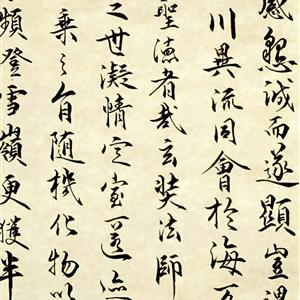 感懇誠而遂顯豈謂
川異流同會於海
聖德者哉玄奘法師
之世凝情定室匿迹
乘之旨随機化物以
頻登雪嶺更獲半